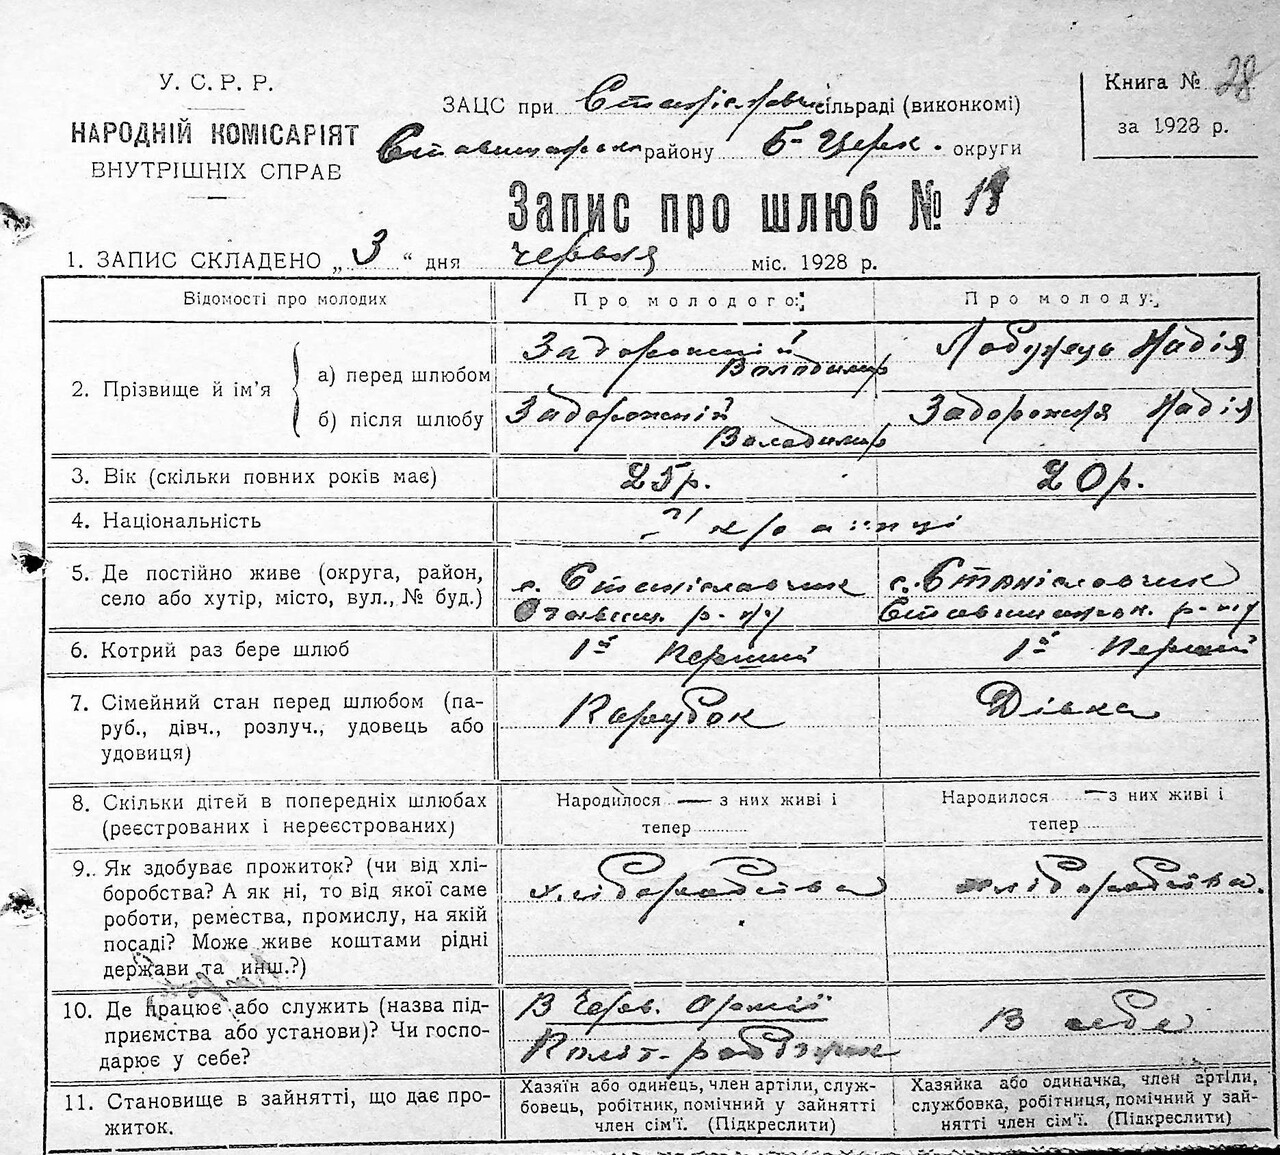 У. С. Р. Р.
НАРОДНІЙ КОМІСАРІЯТ
ВНУТРІШНІХ СПРАВ
ЗАЦС при Станіславчи сільраді (виконкомі)
району Б-Церк. округи
Книга № 28
за 1928 р.
Запис про шлюб № 18
1. ЗАПИС СКЛАДЕНО „ 3 “ дня червня міс. 1928 р.
Відомості про молодих
Про молодого:
Про молоду:
2. Прізвище й ім’я
а) перед шлюбом
Задорожній
Володимир
Лобунець Надія
б) після шлюбу
Задорожній
Володимир
Задорожня Надія
3. Вік (скільки повних років має)
25р.
20р.
4. Національність
5. Де постійно живе (округа, район,
село або хутір, місто, вул., № буд.)
с. Станіславчик
Ставищ. р-ну
с. Станіславчик
р-ну
6. Котрий раз бере шлюб
1й Перший
1й Перший
7. Сімейний стан перед шлюбом (па-
руб., дівч., розлуч., удовець або
удовиця)
Парубок
Дівка
8. Скільки дітей в попередніх шлюбах
(реєстрованих і нереєстрованих)
Народилося — з них живі і
тепер
Народилося — з них живі і
тепер
9. Як здобуває прожиток? (чи від хлі-
боробства? А як ні, то від якої саме
роботи, ремества, промислу, на якій
посаді? Може живе коштами рідні
держави та инш.?)
хліборобства
хліборобства.
10. Де працює або служить (назва під-
приємства або установи)? Чи госпо-
дарює у себе?
В Черв. Армії
В себе
11. Становище в зайнятті, що дає про-
житок.
Хазяїн або одинець, член артіли, служ-
бовець, робітник, помічний у зайнятті
член сім’ї. (Підкреслити)
Хазяйка або одиначка, член артіли,
службовка, робітниця, помічний у зай-
нятті член сім’ї. (Підкреслити)